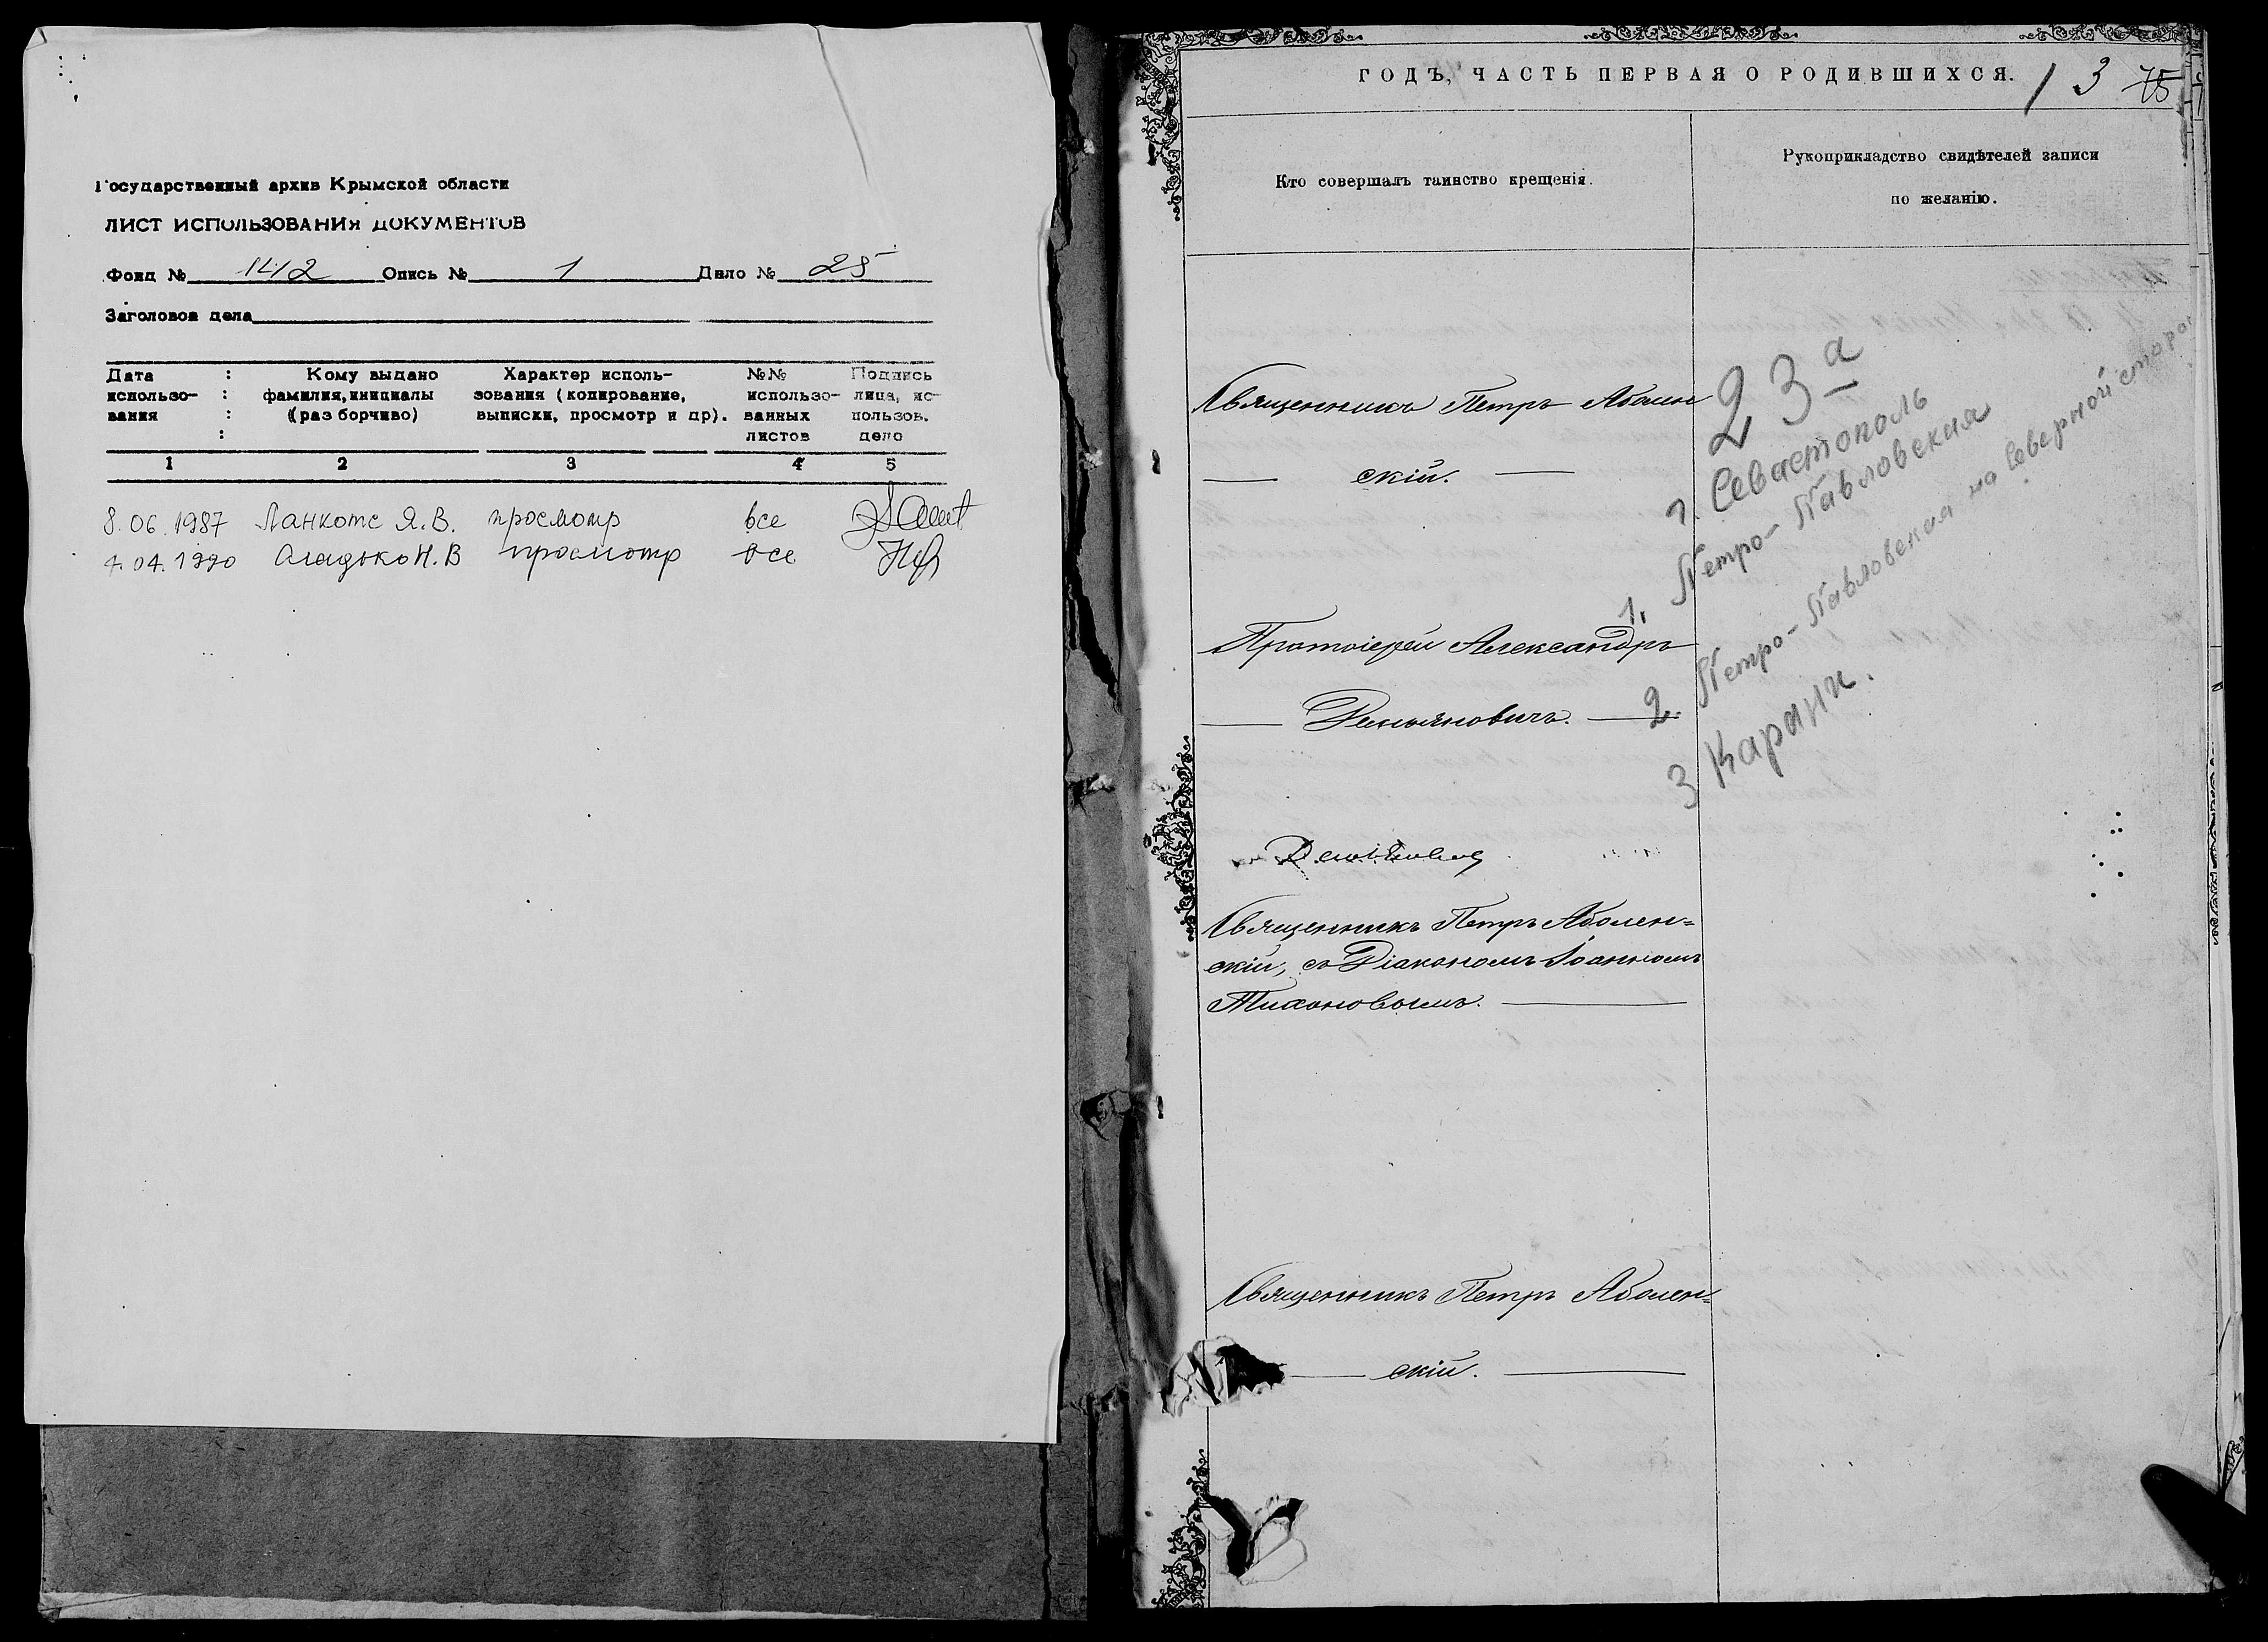 Государственный архив Крымской области
ЛИСТ ИСПОЛЬЗОВАНИЯ ДОКУМЕНТОВ
Фонд № 1412 Опись № 1 Дело № 25
Заголовок дела
Дата : Кому выдано Характер исполь- №№ Подпись
использо- : фамилия, инициалы зования (копирование, использо- лица, ис-
вания : (разборчиво) выписки, просмотр и др). ванных пользов.
: листов дело
1 2 3 4 5
8.06.1987 Ланкотс Я.В. просмотр все
4.04.1990 Сладько Н.В просмотр все
ГОДЪ, ЧАСТЬ ПЕРВАЯ О РОДИВШИХСЯ. 1 3 75
Кто совершалъ таинство крещенія.
Рукоприкладство свидѣтелей записи
по желанію.
Священникъ Петръ Аболен
скій.
Протоіерей Александръ
Демьяновичъ.
Священникъ Петръ Аболен=
скій, съ Діакономъ Іоанномъ
Тихоновымъ.
Священникъ Петръ Аболен=
скій.
23а
г. Севастополь
1. Петро-Павловская
2. Петро-Павловская на Северной сторо
3 Карани.